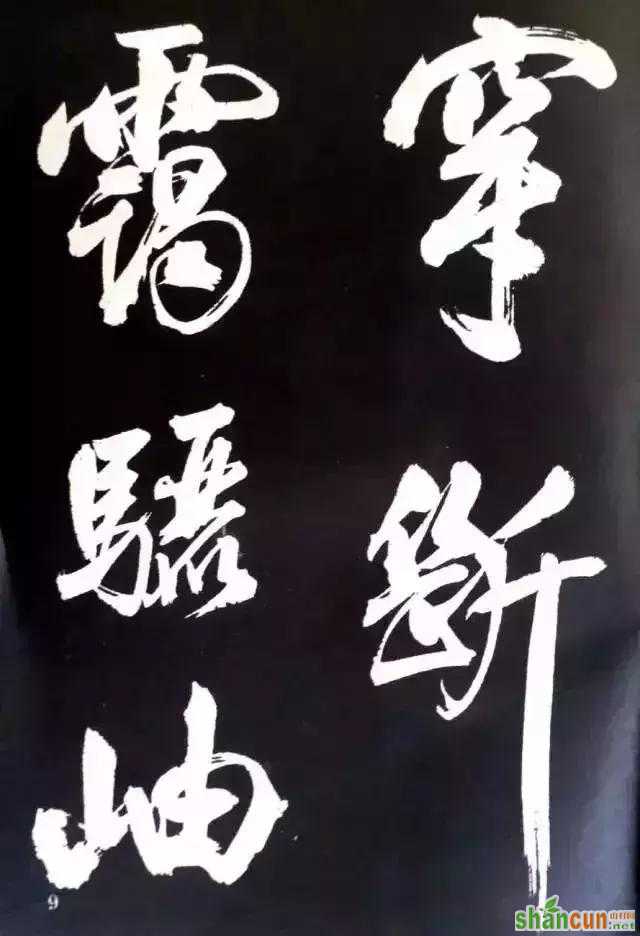 穿斷
靄驪岫
9
shancun
.net